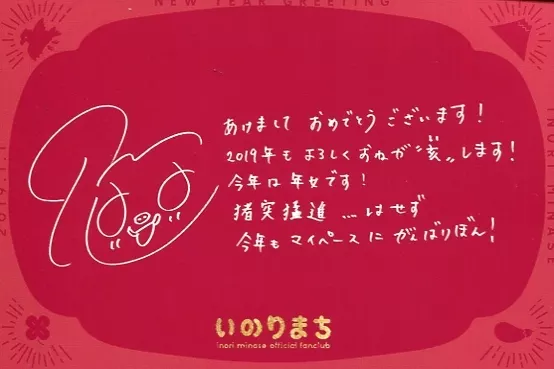 NEW YEAR GREETING
あけまして おめでとう ございます!
2019年も よろしく おねが"亥"します!
今年は 年女です!
猪突猛進 …はせず
今年も マイペースに がんばりぼん!
2019.1.1
INORI MINASE
いのりまち
inori minase official fanclub